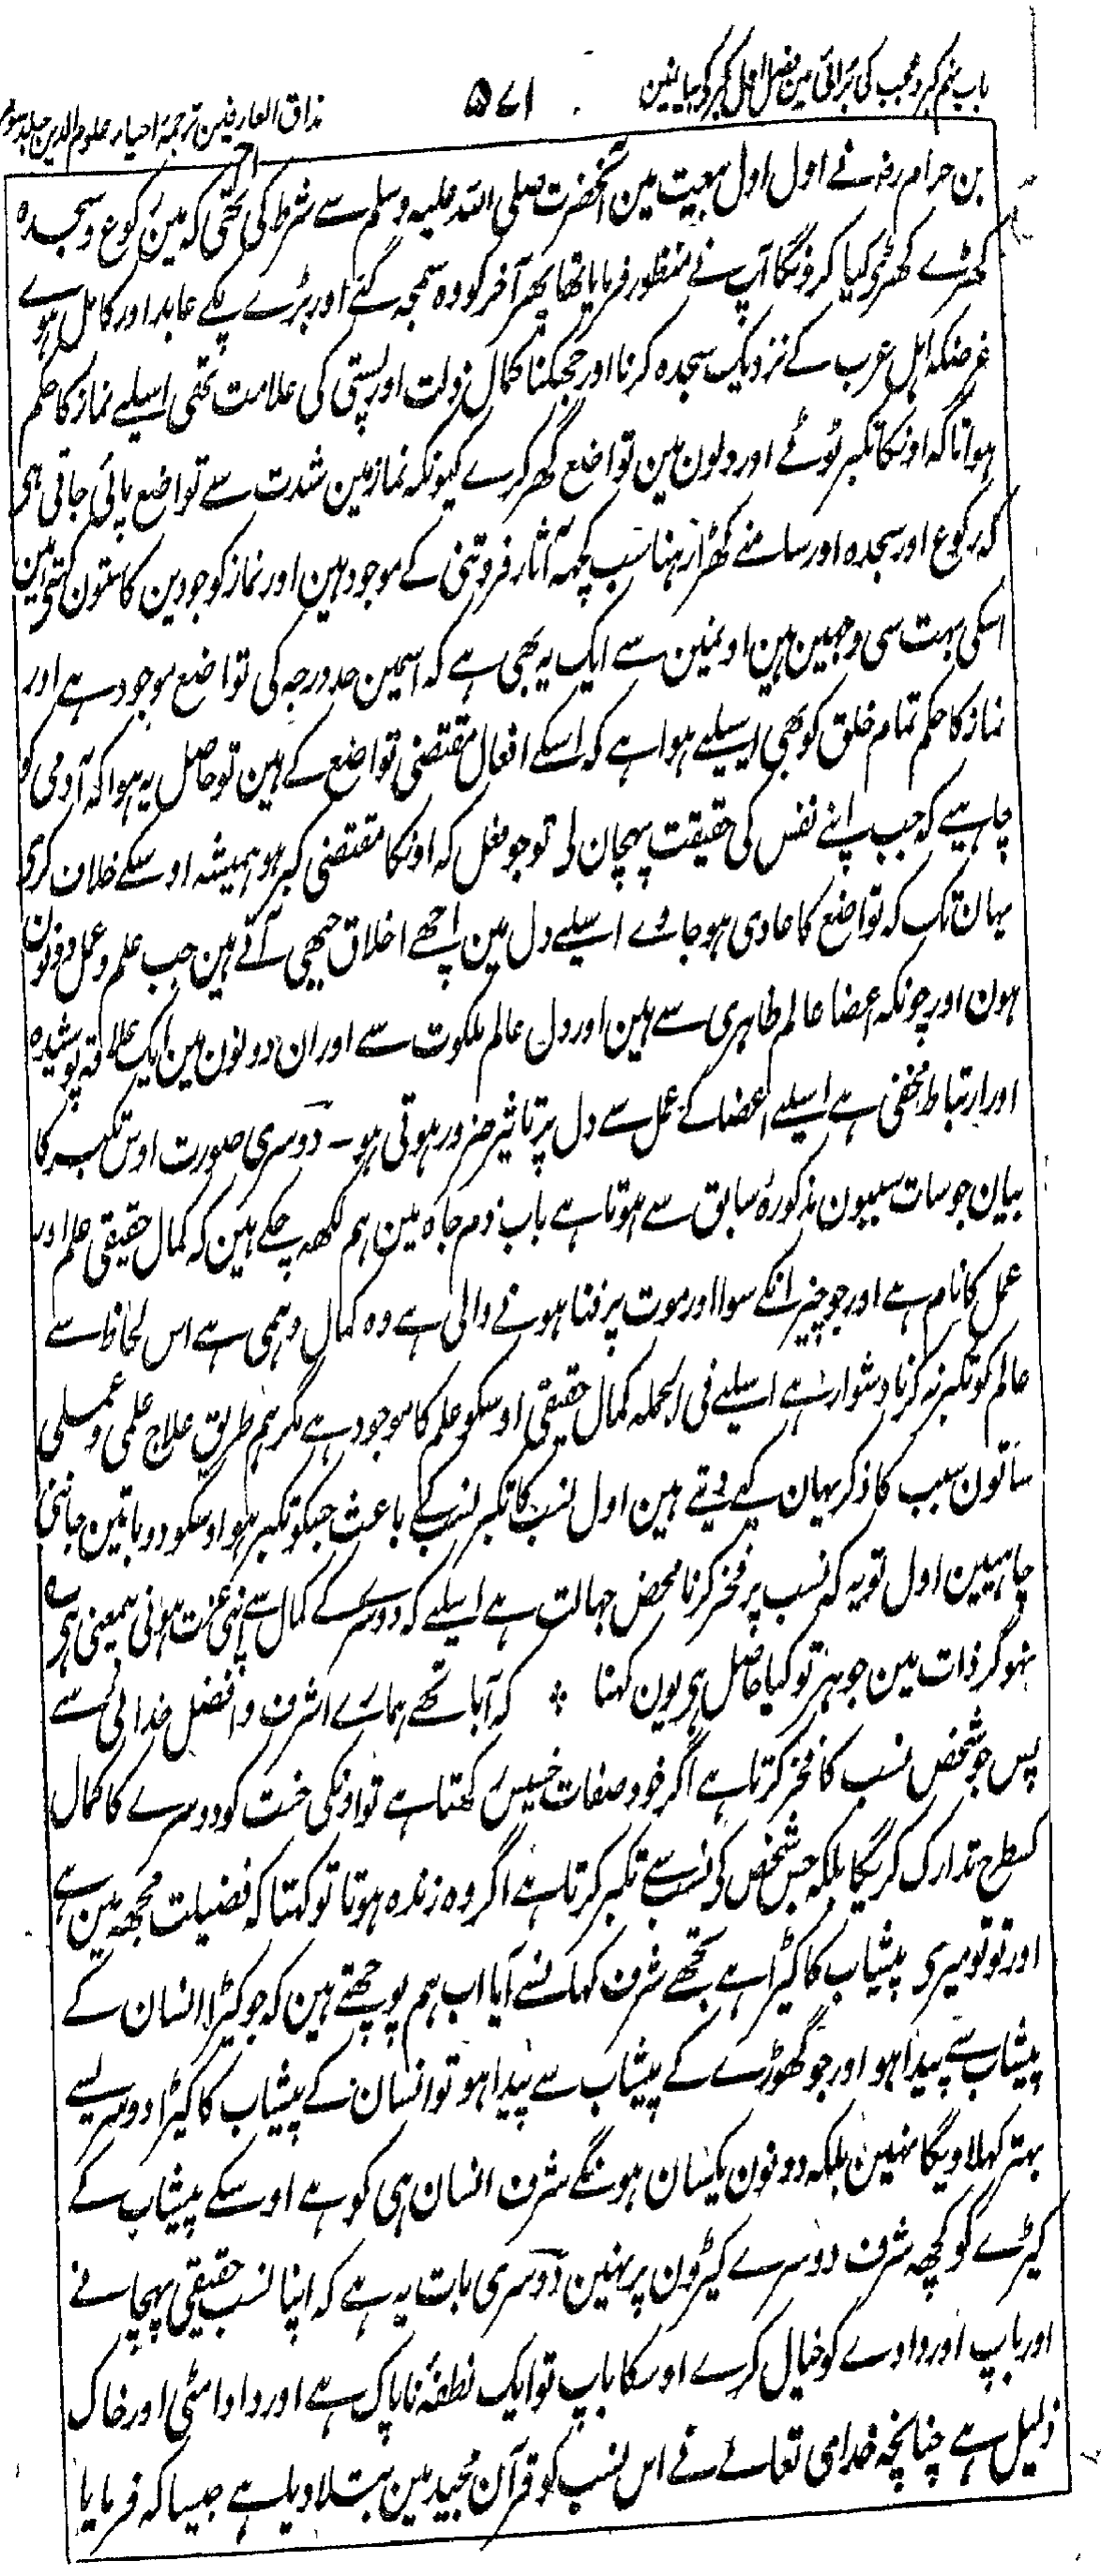 باب نہم کبر و عجب کی برائی مین فصل اول کبر کی بیانمین
۵۷۱
مذاق العارفین ترجمۂ احیاء علوم الدین جلد سوم
بن حرام رضہ نے اول اول بیعت مین آنحضرت صلی اللہ علیہ وسلم سے شرط کی تھی کہ مین رکوع و سجدہ
کھڑے کھڑے کیا کرونگا آپ نے منظور فرمایا تھا پھر آخر کو وہ سمجہ گئے اور بڑے پکے عابد اور کامل ہوے
غرضکہ اہل عرب کے نزدیک سجدہ کرنا اور جھکنا کمال ذلت اور پستی کی علامت تھی اسلیے نماز کا حکم
ہوا تا کہ اونکا تکبر ٹوٹے اور دلون مین تواضع گھر کرے کیونکہ نماز مین شدت سے تواضع پائی جاتی ہی
کہ رکوع اور سجدہ اور سامنے کھڑا رہنا سب کچھہ آثار فروتنی کے موجود ہین اور نماز کو جو دین کا ستون کہتے ہین
اسکی بہت سی وجہین ہین اونمین سے ایک یہ بھی ہے کہ اسمین حد درجہ کی تواضع موجود ہے اور
نماز کا حکم تمام خلق کو بھی اسیلیے ہوا ہے کہ اسکے افعال مقتضی تواضع کے ہین تو حاصل یہ ہوا کہ آدمی کو
چاہیے کہ جب اپنے نفس کی حقیقت پہچان لی تو جو فعل کہ اونکا مقتضی کبر ہو ہمیشہ اوسکے خلاف کری
یہان تک کہ تواضع کا عادی ہو جاوے اسیلیے دل مین اچھے اخلاق جبھی آتے ہین جب علم و عمل دونون
ہون اور چونکہ اعضا عالم ظاہری سے ہین اور دل عالم ملکوت سے اور ان دونون مین ایک علاقہ پوشیدہ
اور ارتباط مخفی ہے اسیلیے اعضا کے عمل سے دل پر تاثیر ضرور ہوتی ہو۔ دوسری صورت اوس تکبر کا
بیان جو سات سببون مذکورۂ سابق سے ہوتا ہے باب ذم جاہ مین ہم لکھہ چکے ہین کہ کمال حقیقی علم اور
عمل کا نام ہے اور جو چیز انکے سوا اور موت پر فنا ہونے والی ہے وہ کمال وہمی ہے اس لحاظ سے
عالم کو تکبر نہ کرنا دشوار ہے اسیلیے فی الجملہ کمال حقیقی اوسکو علم کا موجود ہے مگر ہم طریق علاج علمی و عملی
ساتون سبب کا ذکر یہان کیے دیتے ہین اول نسب کا تکبر نسب کے باعث جسکو تکبر ہو اوسکو دو باتین جاننی
چاہیین اول تو یہ کہ نسب پر فخر کرنا محض جہالت ہے اسیلیے کہ دوسرے کے کمال سے اپنی عزت ہونی بیمعنی ہی ؎
نہو گر ذات مین جوہر تو کیا حاصل ہی یون کہنا ٭ کہ آبا تھے ہمارے اشرف و افضل خدائی سے
پس جو شخص نسب کا فخر کرتا ہے اگر خود صفات خسیس رکھتا ہے تو اونکی خست کو دوسرے کا کمال
کسطرح تدارک کریگا بلکہ جس شخص کی نسب سے تکبر کرتا ہے اگر وہ زندہ ہوتا تو کہتا کہ فضیلت مجھہ مین ہے
اور تو تو میری پیشاب کا کیڑا ہے تجھے شرف کہانسے آیا اب ہم پوچھتے ہین کہ جو کیڑا انسان کے
پیشاب سے پیدا ہو اور جو گھوڑے کے پیشاب سے پیدا ہو تو انسان کے پیشاب کا کیڑا دوسریسے
بہتر کہلاویگا نہین بلکہ دونون یکسان ہونگے شرف انسان ہی کو ہے اوسکے پیشاب کے
کیڑے کو کچھہ شرف دوسرے کیڑون پر نہین دوسری بات یہ ہے کہ اپنا نسب حقیقی پہچانے
اور باپ اور دادے کو خیال کرے اوسکا باپ تو ایک نطفۂ ناپاک ہے اور دادا مٹی اور خاک
ذلیل ہے چنانچہ خدای تعالے نے اس نسب کو قرآن مجید مین بتلا دیا ہے جیسا کہ فرمایا